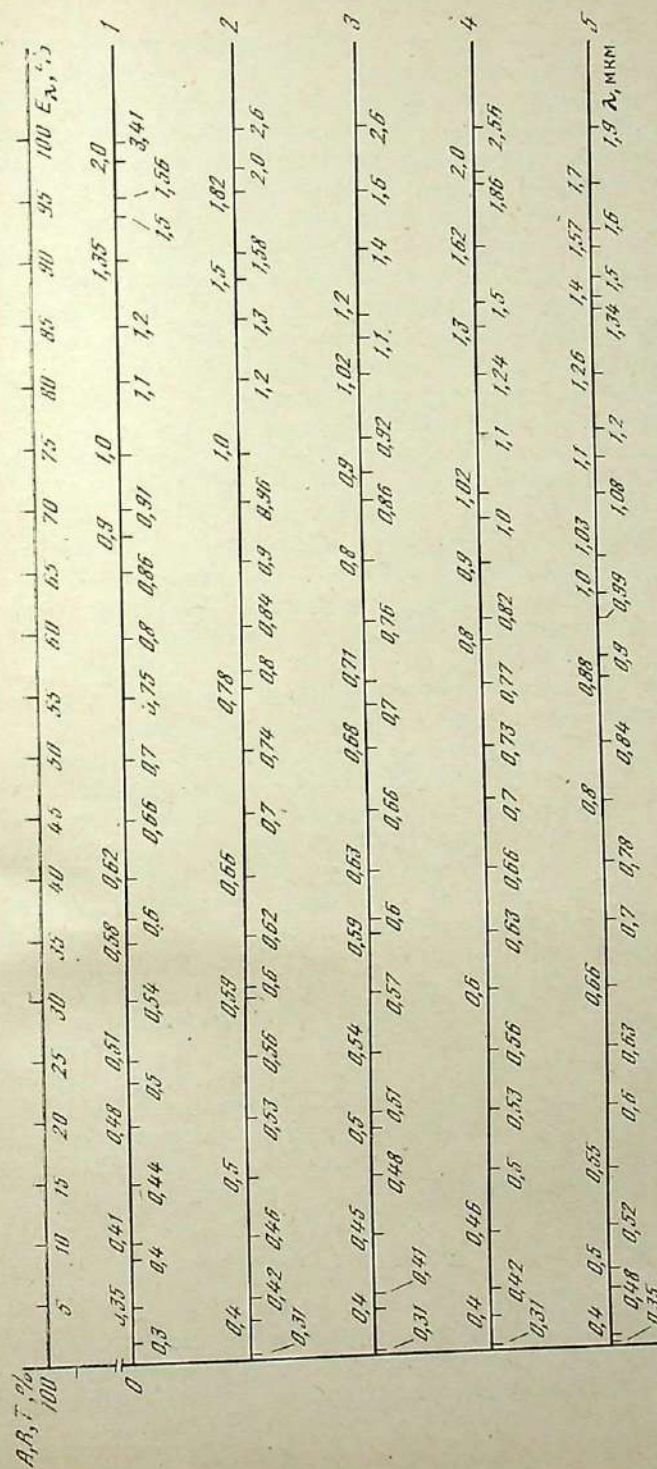 A,R,T,%
100 5 10 15 20 25 30 35 40 45 50 55 60 65 70 75 80 85 90 95 100 Eλ, %
0,35 0,41 0,48 0,51 0,58 0,62 0,9 1,0 1,35 2,0 1
0 0,3 0,4 0,44 0,5 0,54 0,6 0,66 0,7 0,75 0,8 0,86 0,91 1,1 1,2 1,5 1,56 3,41
0,4 0,5 0,59 0,66 0,78 1,0 1,5 1,82 2
0,31 0,42 0,46 0,53 0,56 0,6 0,62 0,7 0,74 0,8 0,84 0,9 0,96 1,2 1,3 1,58 2,0 2,6
0,4 0,45 0,5 0,54 0,59 0,63 0,68 0,71 0,8 0,9 1,02 1,2 3
0,31 0,41 0,48 0,51 0,57 0,6 0,66 0,7 0,76 0,86 0,92 1,1 1,4 1,6 2,6
0,4 0,46 0,6 0,8 0,9 1,02 1,3 1,62 2,0 4
0,31 0,42 0,5 0,53 0,56 0,63 0,66 0,7 0,73 0,77 0,82 1,0 1,1 1,24 1,5 1,86 2,56
0,4 0,5 0,55 0,66 0,8 0,88 1,0 1,03 1,1 1,26 1,4 1,57 1,7 5
0,35 0,48 0,52 0,6 0,63 0,7 0,78 0,84 0,9 0,99 1,08 1,2 1,34 1,5 1,6 1,9 λ, мкм